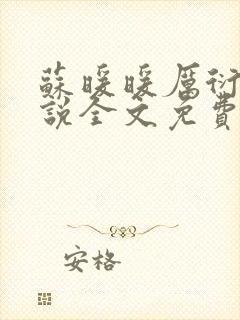 蘇暖暖厲衍
說全文免費
安格